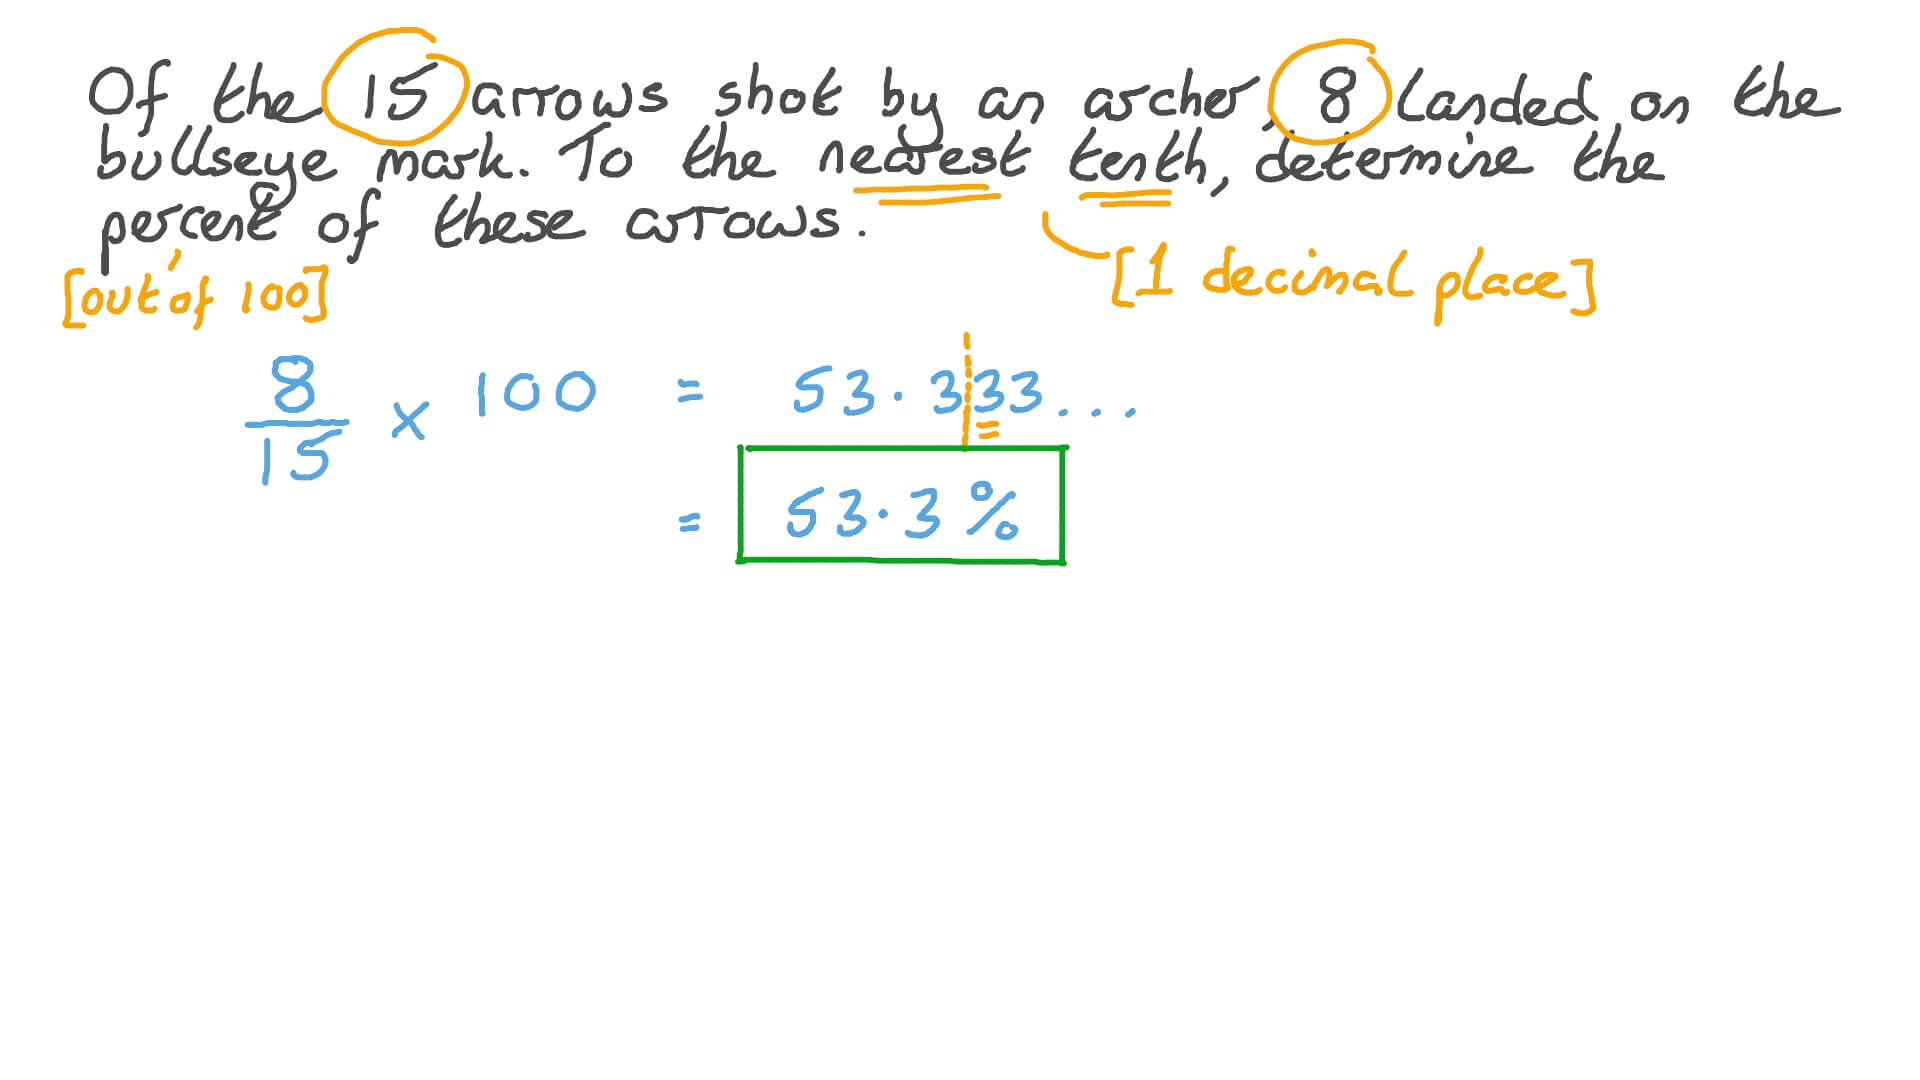 Of the 15 arrows shot by an archer, 8 landed on the
bullseye mark. To the nearest tenth, determine the
percent of these arrows.
[1 decimal place]
[out of 100]
8/15 × 100 = 53.333...
= 53.3%